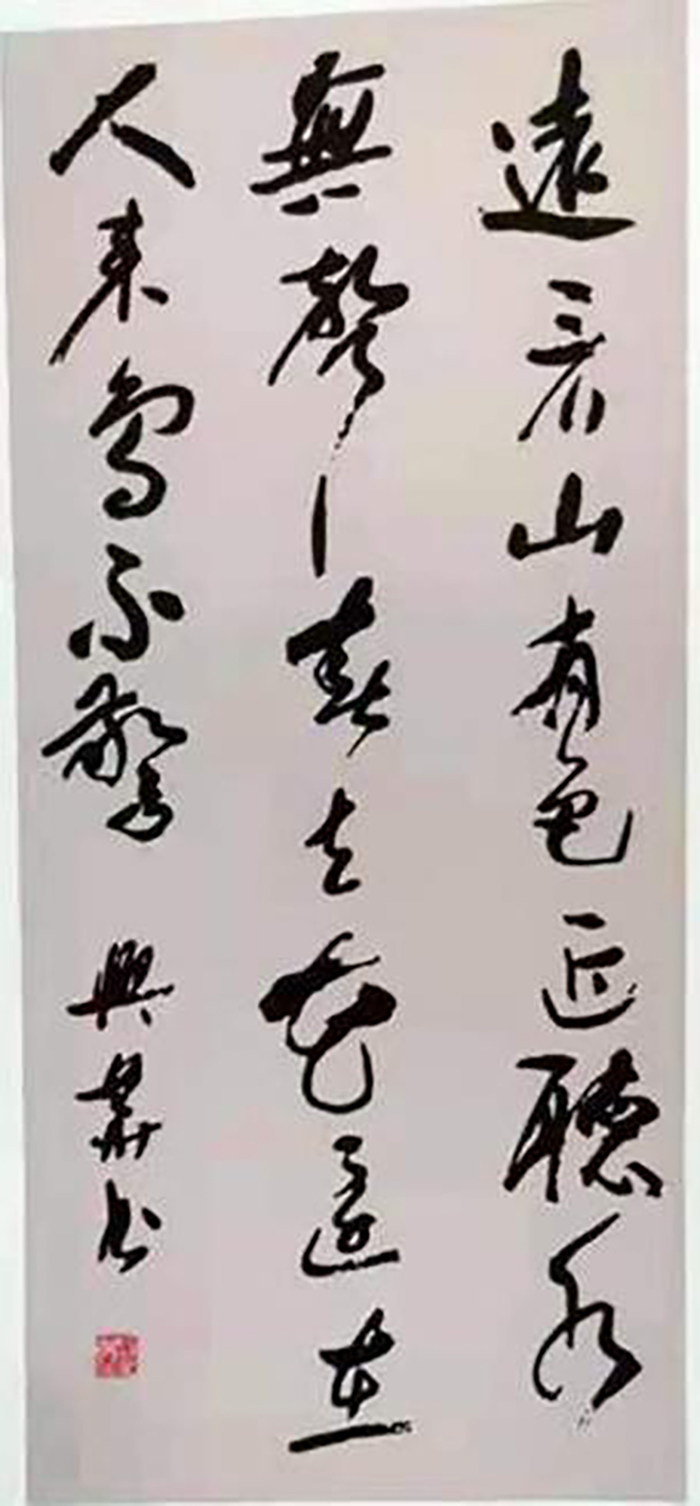 遠看山有色近聽水
無聲春去花還在
人來鳥不驚 興華书